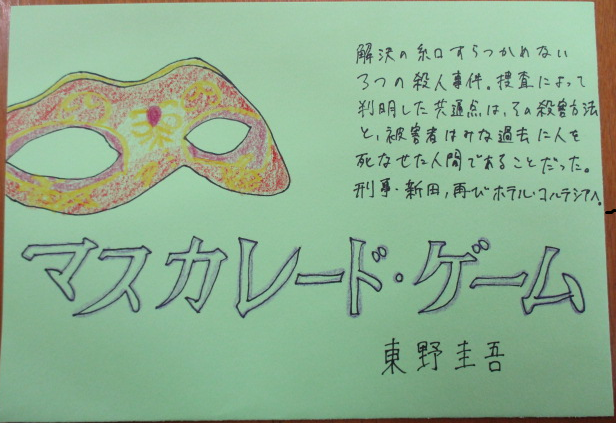 解決の糸口すらつかめない
3つの殺人事件。捜査によって
判明した共通点は、その殺害方法
と、被害者はみな過去に人を
死なせた人間であることだった。
刑事・新田、再びホテル・コルテシアへ。
マスカレード・ゲーム
東野圭吾